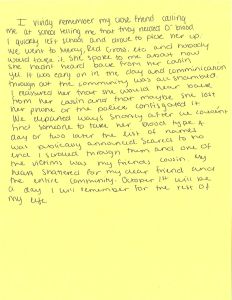 I vividly remember my best friend calling
me at school telling me that they needed O' blood
I quickly left school and drove to pick her up.
We went to Mercy, Red Cross, etc. and nobody
would take it. She spoke to me about how
she hadn't heard back from her cousin
yet. It was early on in the day and communication
throughout the community was all scrambled.
I reassured her that she would hear back
from her cousin and that maybe she lost
her phone or the police confiscated it.
We departed ways shortly after we couldn't
find someone to take her blood type. A
day or two later the list of names
was publically announced
end. I scrolled through them and one of
the victims was my friends cousin. My
heart shattered for my dear friend and
the entire community. October 1st will be
a day I will remember for the rest of
my life.